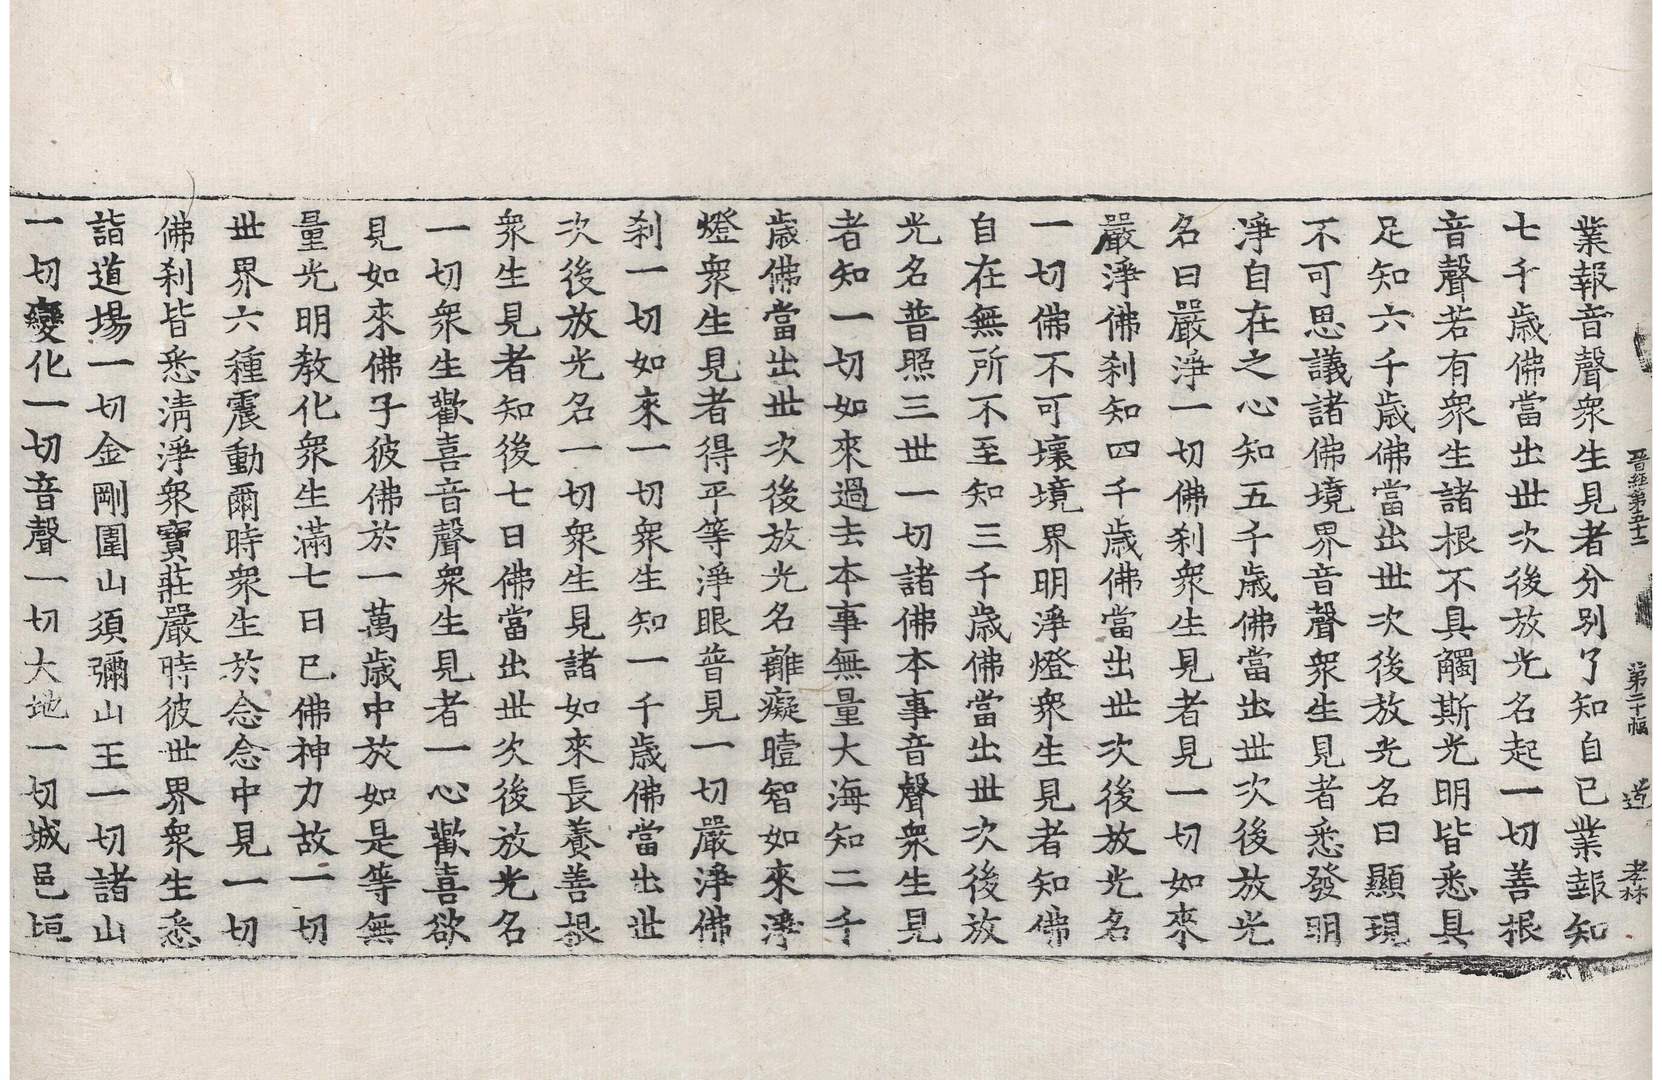 晉經第五十二 第二十幅 道 孝林
業報音聲衆生見者分別了知自己業報知
七千歲佛當出世次後放光名起一切善根
音聲若有衆生諸根不具觸斯光明皆悉具
足知六千歲佛當出世次後放光名曰顯現
不可思議諸佛境界音聲衆生見者悉發明
淨自在之心知五千歲佛當出世次後放光
名曰嚴淨一切佛刹衆生見者見一切如來
嚴淨佛刹知四千歲佛當出世次後放光名
一切佛不可壞境界明淨燈衆生見者知佛
自在無所不至知三千歲佛當出世次後放
光名普照三世一切諸佛本事音聲衆生見
者知一切如來過去本事無量大海知二千
歲佛當出世次後放光名離癡曀智如來淨
燈衆生見者得平等淨眼普見一切嚴淨佛
刹一切如來一切衆生知一千歲佛當出世
次後放光名一切衆生見諸如來長養善根
衆生見者知後七日佛當出世次後放光名
一切衆生歡喜音聲衆生見者一心歡喜欲
見如來佛子彼佛於一萬歲中放如是等無
量光明教化衆生滿七日已佛神力故一切
世界六種震動爾時衆生於念念中見一切
佛刹皆悉清淨衆寶莊嚴時彼世界衆生悉
詣道場一切金剛圍山須彌山王一切諸山
一切變化一切音聲一切大地一切城邑垣